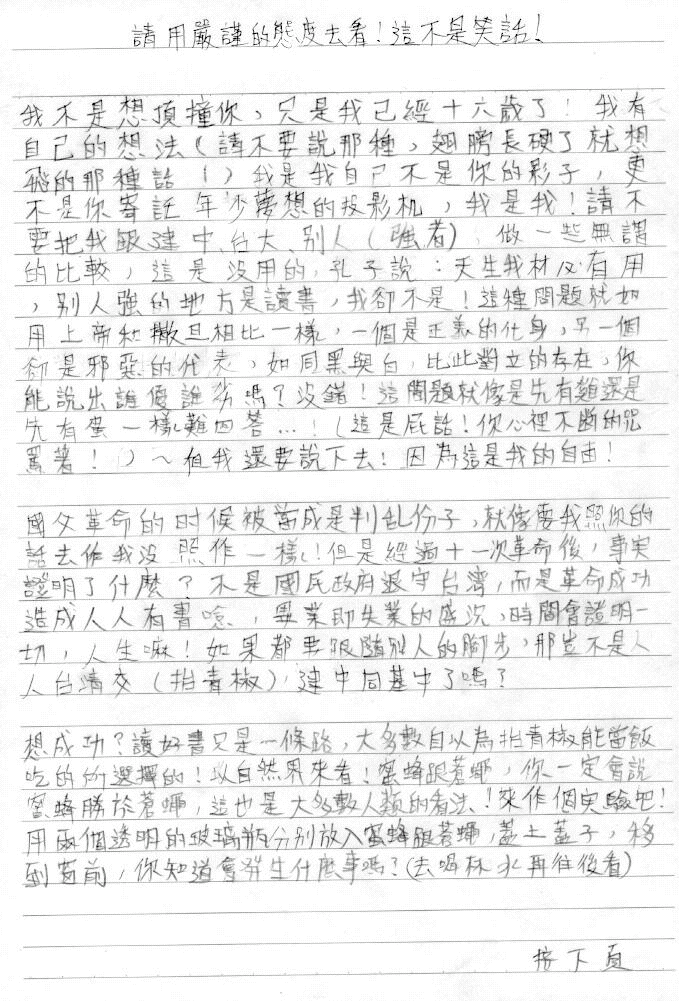 請用嚴謹的態度去看!這不是笑話!
我不是想頂撞你,只是我已經十六歲了!我有
自己的想法(請不要說那種,翅膀長硬了就想
飛的那種話!)我是我自己不是你的影子,更
不是你寄託年少夢想的投影机,我是我!請不
要把我跟建中、台大、別人(強者),做一些無謂
的比較,這是沒用的,孔子說:天生我材必有用
,別人強的地方是讀書,我卻不是!這種問題就如
用上帝和撒旦相比一樣,一個是正義的化身,另一個
卻是邪惡的代表,如同黑與白,比此對立的存在,你
能說出誰優誰劣嗎?沒錯!這問題就像是先有雞還是
先有蛋一樣難回答…!(這是屁話!你心裡不斷的咒
罵著!)~但我還要說下去!因為這是我的自由!
國父革命的时候被當成是判乱份子,就像要我照你的
話去作我沒照作一樣!但是經過十一次革命後,事实
證明了什麼?不是國民政府退守台灣,而是革命成功
造成人人有書唸,畢業即失業的盛況,時間會證明一
切,人生嘛!如果都要跟隨別人的腳步,那豈不是人
人台清交(抬青椒),建中同基中了嗎?
想成功?讀好書只是一條路,大多數自以為抬青椒能當飯
吃的所選擇的!以自然界來看!蜜蜂跟蒼蠅,你一定會說
蜜蜂勝於蒼蠅,這也是大多數人類的看法!來作個実驗吧!
用兩個透明的玻璃瓶分別放入蜜蜂跟蒼蠅,蓋上蓋子,移
到窗前,你知道會発生什麼事嗎?(去喝杯水再往後看)
接下頁